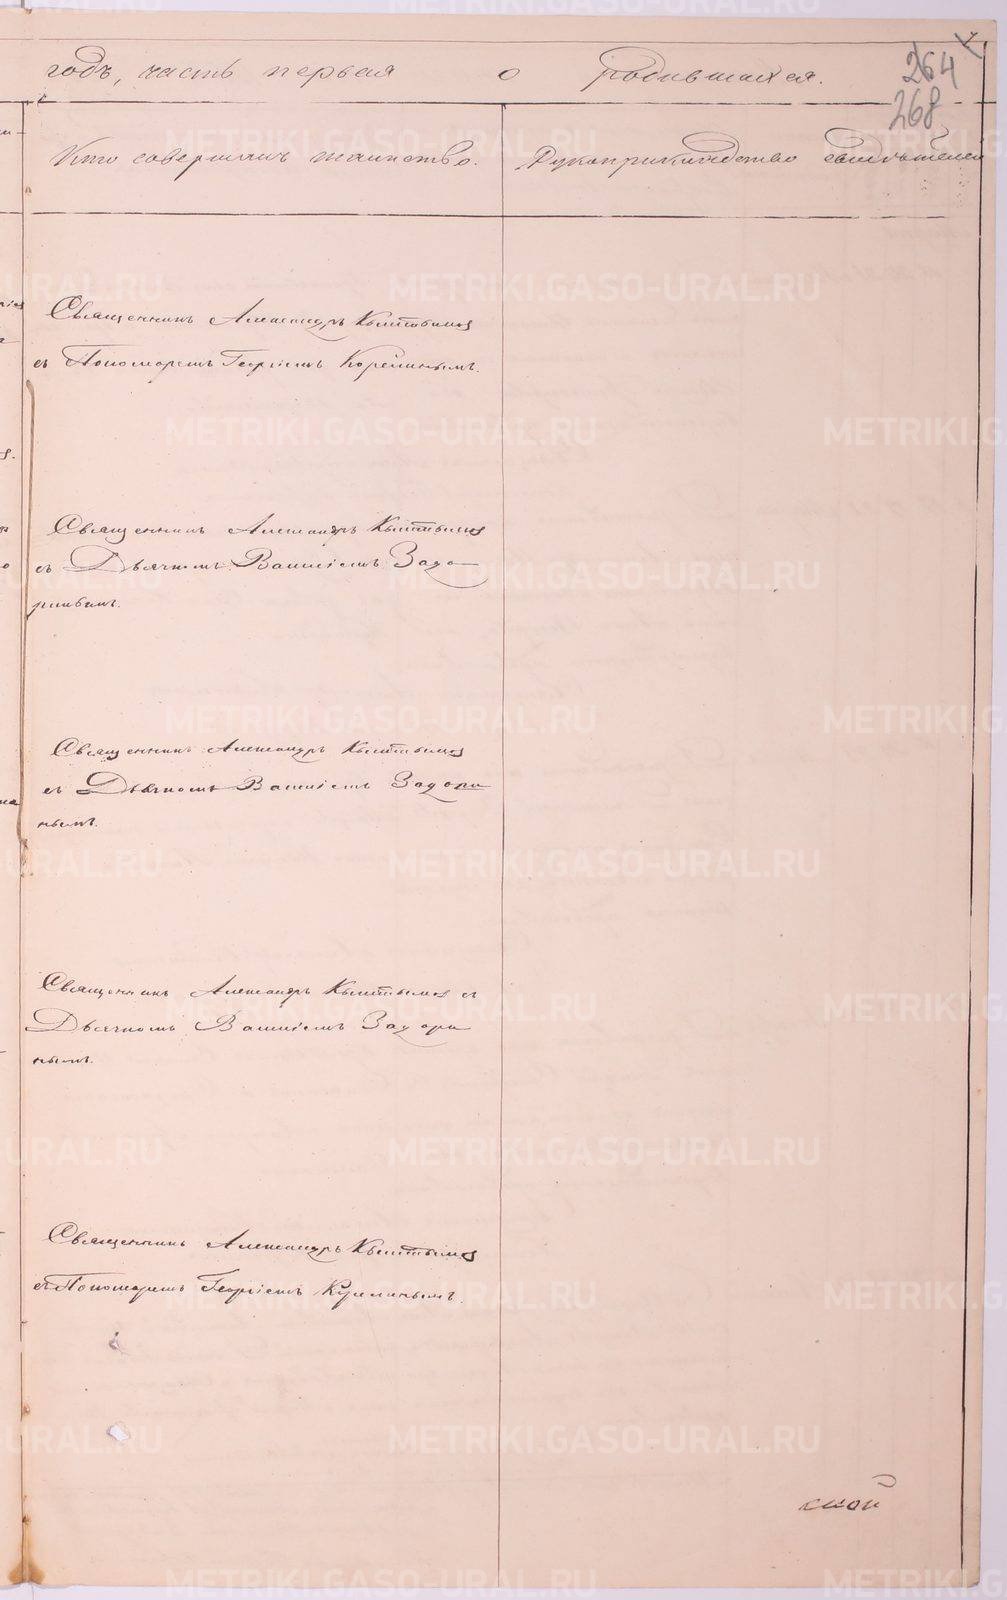 годъ, часть первая о родившихся.
264
268
Кто совершалъ таинство. Рукоприкладство свидѣтелей
Священникъ Александръ Кыштымовъ
съ Пономаремъ Георгіемъ
Священникъ Александръ Кыштымовъ
съ Дьячкомъ Василіемъ Задо-
ринымъ.
Священникъ Александръ Кыштымовъ
съ Дьячкомъ Василіемъ Задори
нымъ.
Священникъ Александръ Кыштымовъ съ
Дьячкомъ Василіемъ Задори
нымъ.
Священникъ Александръ Кыштымовъ
съ Пономаремъ Георгіемъ
ской
METRIKI.GASO-URAL.RU